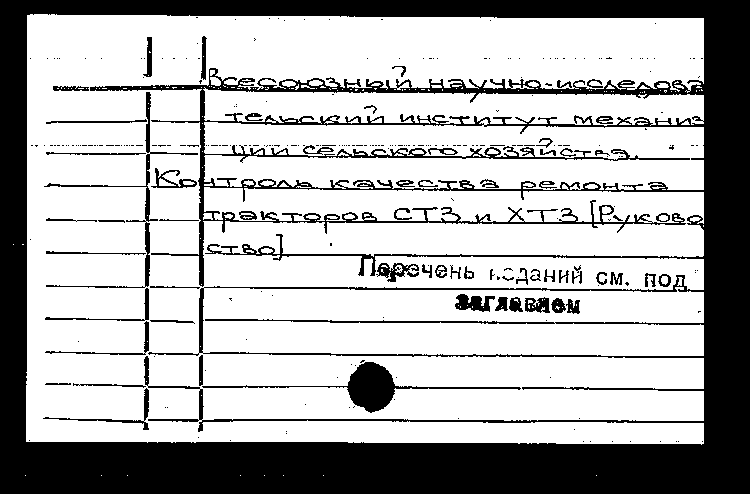 Всесоюзный научно-исследова
тельский институт механиз
ции сельского хозяйства.
Контроль качества ремонта
тракторов СТЗ и ХТЗ [Руково
ство]
Перечень изданий см. под
заглавием